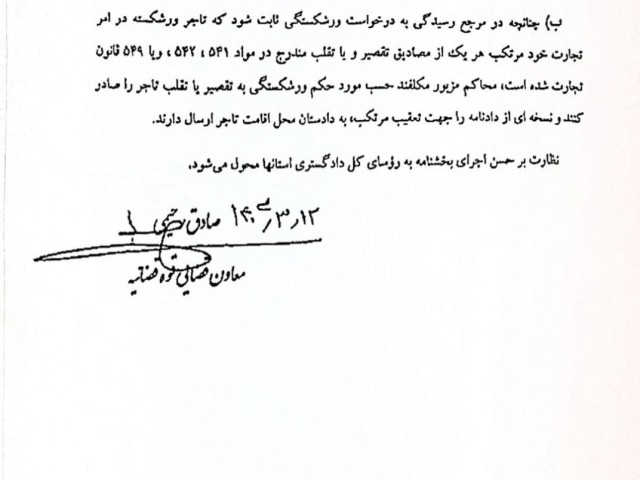 ب) چنانچه در مرجع رسیدگی به درخواست ورشکستگی ثابت شود که تاجر ورشکسته در امر
تجارت خود مرتکب هر یک از مصادیق تقصیر و یا تقلب مندرج در مواد ۵۴۱ ، ۵۴۲ ، ویا ۵۴۹ قانون
تجارت شده است، محاکم مزبور مکلفند حسب مورد حکم ورشکستگی به تقصیر یا تقلب تاجر را صادر
کنند و نسخه ای از دادنامه را جهت تعقیب مرتکب، به دادستان محل اقامت تاجر ارسال دارند.
نظارت بر حسن اجرای بخشنامه به رؤسای کل دادگستری استانها محول می‌شود.
صادق رحیمی
معاون قضائی قوه قضائیه